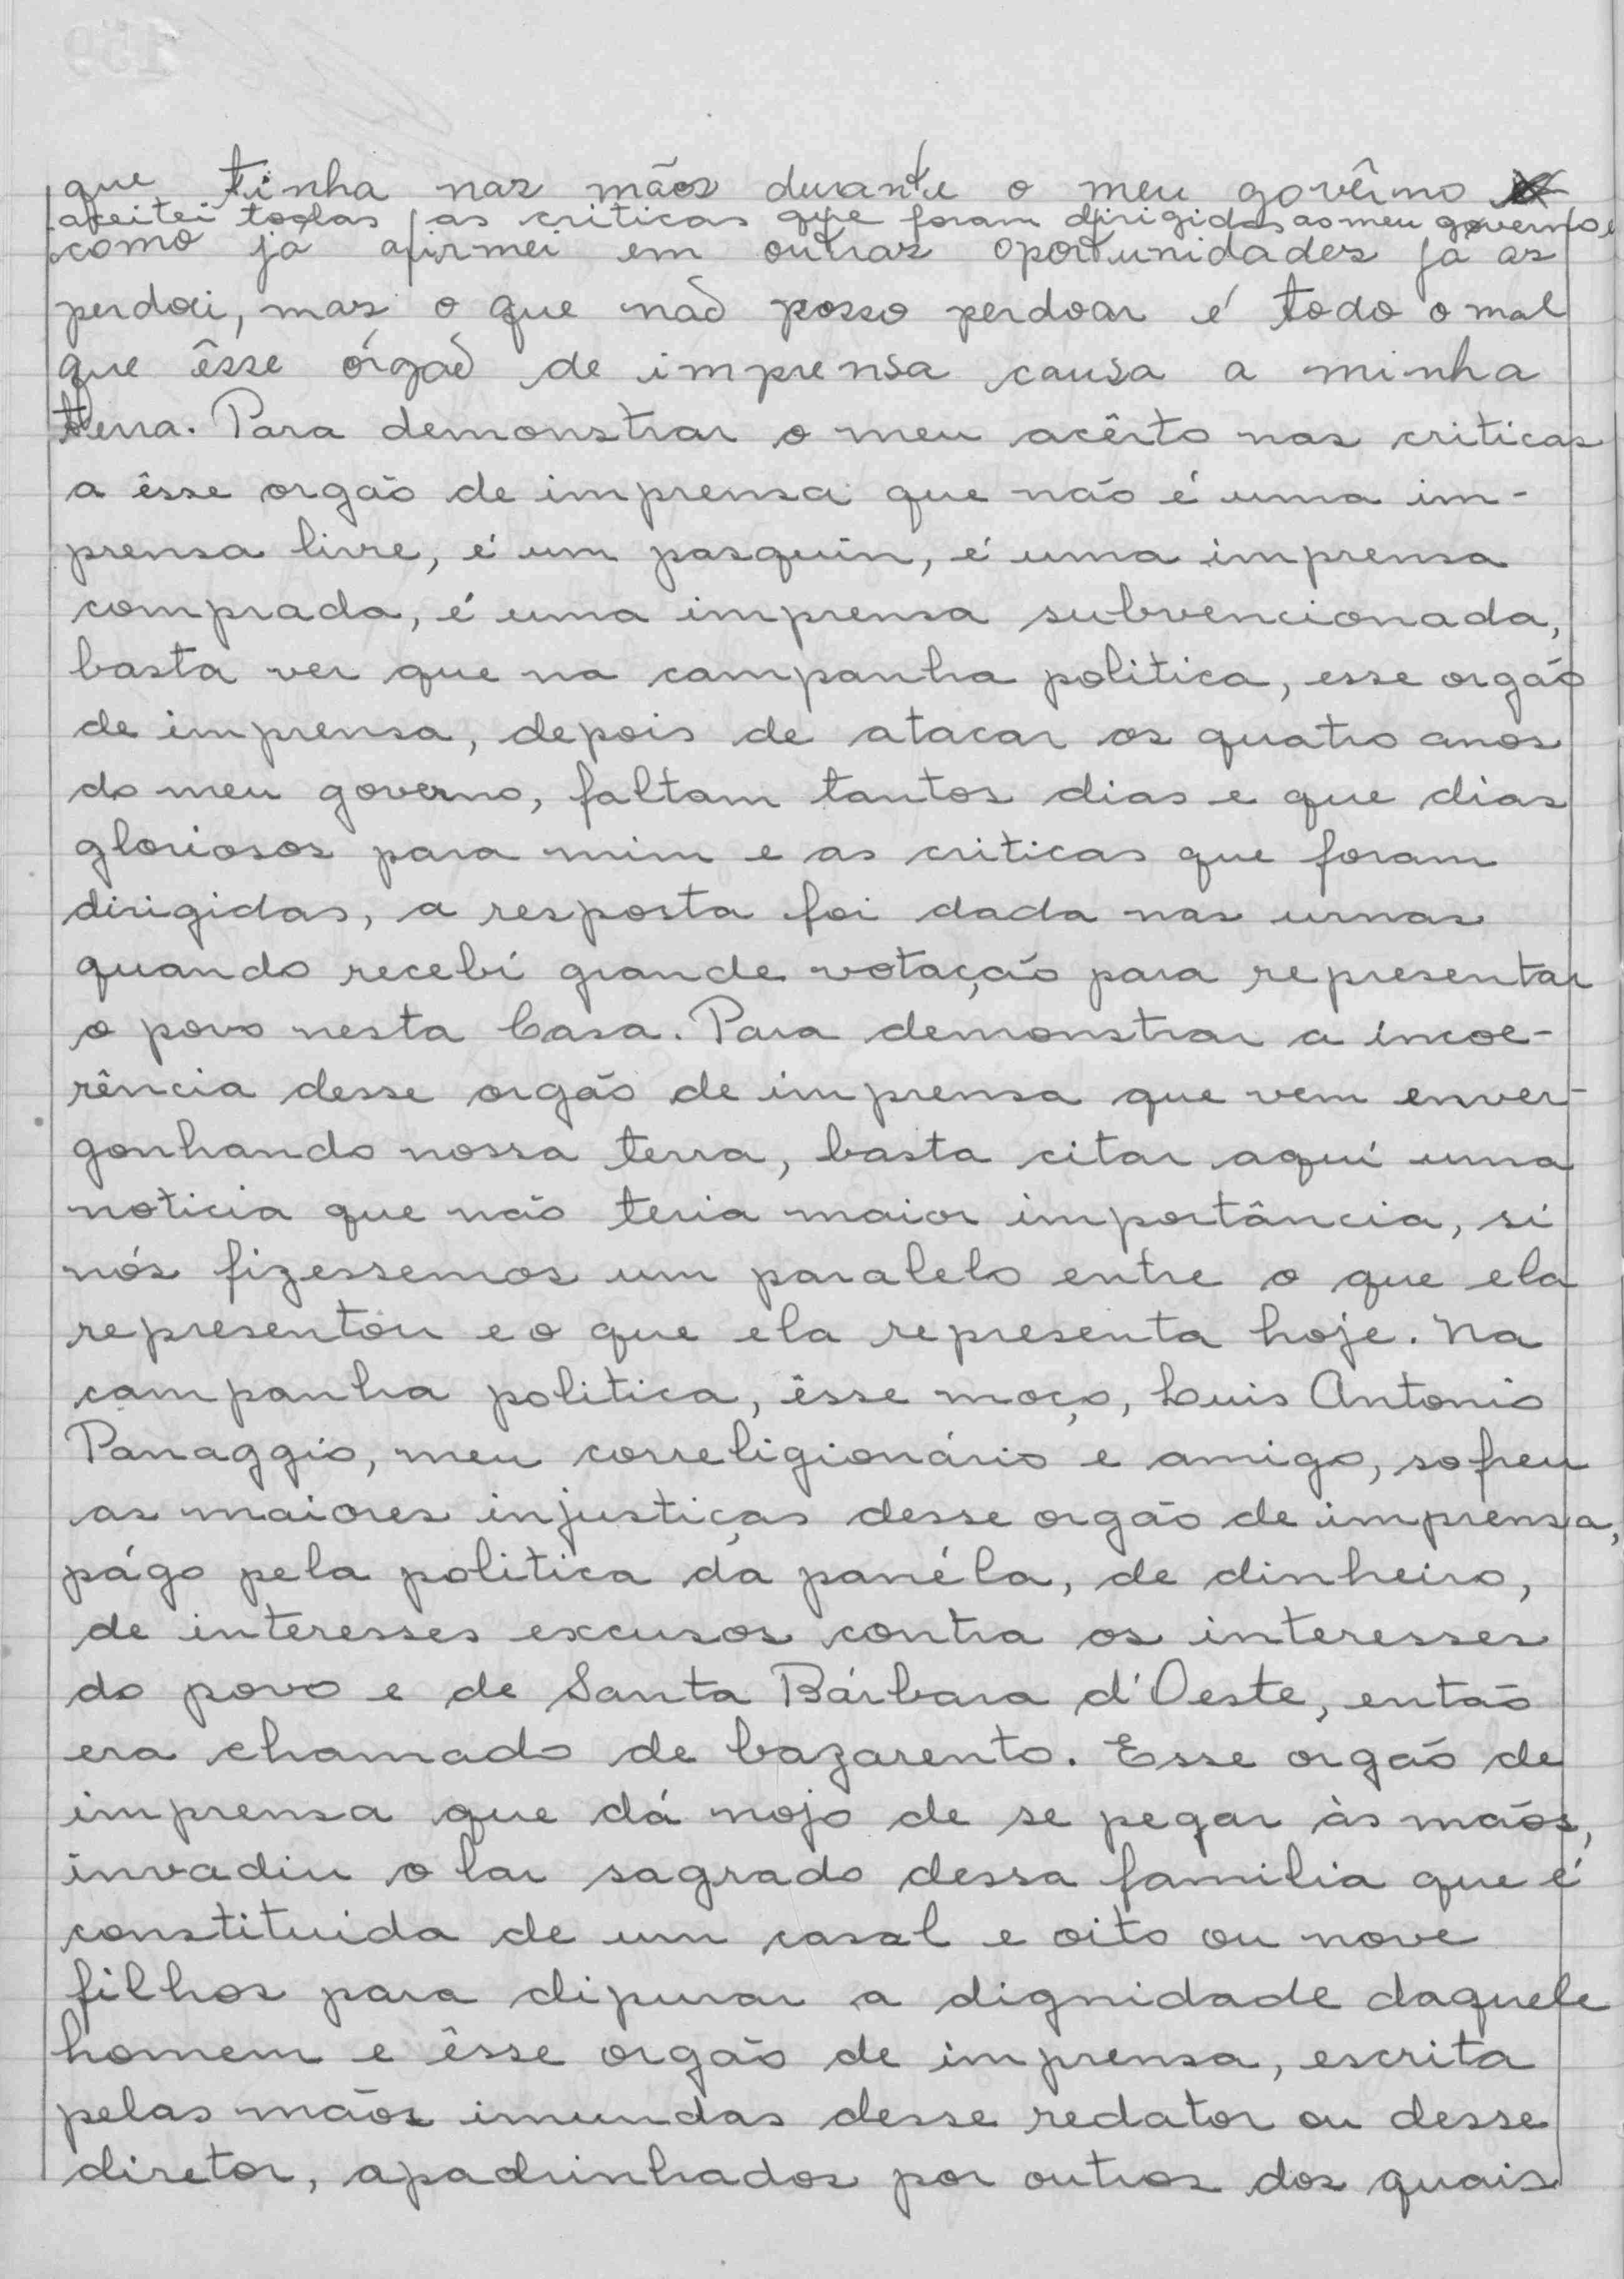 que tinha nas mãos durante o meu govêrno
aceitei todas as criticas que foram dirigidas ao meu governo e
como já afirmei em outras oportunidades já as
perdoei, mas o que não posso perdoar é todo o mal
que êsse órgão de imprensa causa a minha
terra. Para demonstrar o meu acêrto nas criticas
a êsse orgão de imprensa que não é uma im-
prensa livre, é um pasquin, é uma imprensa
comprada, é uma imprensa subvencionada,
basta ver que na campanha politica, esse orgão
de imprensa, depois de atacar os quatro anos
do meu governo, faltam tantos dias e que dias
gloriosos para mim e as criticas que foram
dirigidas, a resposta foi dada nas urnas
quando recebí grande votação para representar
o povo nesta Casa. Para demonstrar a incoe-
rência desse orgão de imprensa que vem enver-
gonhando nossa terra, basta citar aquí uma
noticia que não teria maior importância, si
nós fizessemos um paralelo entre o que ela
representou e o que ela representa hoje. Na
campanha politica, êsse moço, Luis Antonio
Panaggio, meu correligionário e amigo, sofreu
as maiores injustiças desse orgão de imprensa,
págo pela politica da panéla, de dinheiro,
de interesses excusos contra os interesses
do povo e de Santa Bárbara d'Oeste, então
era chamado de bazarento. Esse orgão de
imprensa que dá nojo de se pegar às mãos,
invadiu o lar sagrado dessa familia que é
constituida de um casal e oito ou nove
filhos para dipurar a dignidade daquele
homem e êsse orgão de imprensa, escrita
pelas mãos imundas desse redator ou desse
diretor, apadrinhados por outros dos quais